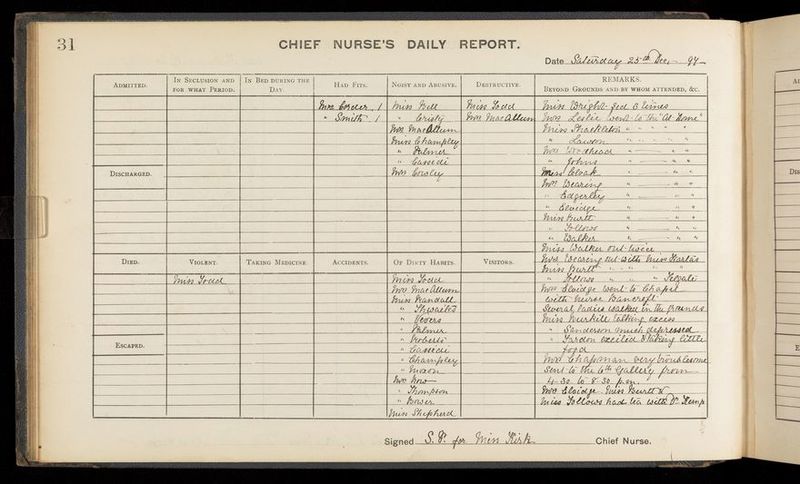 31
CHIEF NURSE'S DAILY REPORT.
Date Saturday 25th Dec. 97
ADMITTED.
IN SECLUSION AND FOR WHAT PERIOD.
IN BED DURING THE DAY.
HAD FITS.
NOISY AND ABUSIVE.
DESTRUCTIVE.
REMARKS.
BEYOND GROUNDS AND BY WHOM ATTENDED, &C.
Mrs 1
" Smith 1
Miss Bell
" Cristy
Mrs MacAllum
Miss Champley
" Palmer
" Cassidi
Mrs Cowley
Miss Todd
Mrs MacAllum
Miss Wright fed 6 times
Mrs Leslie went to the "At Home"
Miss Shackleton " " " "
" Lawson " " " "
Mrs Woodhead " " "
" Johns " " "
Miss Cloak " " "
Mrs Wearing " " "
" Edgerley " " "
" Elvidge " " "
Miss Burtt " " "
" Follows " " "
" Walker " " "
Miss Walker out twice
DISCHARGED.
DIED.
VIOLENT.
TAKING MEDICINE
ACCIDENTS.
OF DIRTY HABITS.
VISITORS.
Miss Todd
Miss Todd
Mrs MacAllum
Miss Randall
" Thwaites
" Vevers
" Palmer
" Roberts
" Cassidi
" Champley
" Moxon
Mrs How
" Thompson
" Bower
Miss Shepherd
Mrs Wearing out with Miss
Miss Burtt " " " "
" Follows " " " "
Mrs Elvidge went to Chapel
with Nurse Bancroft
Several ladies walked in the grounds
Miss Burkill talking excess
" Sanderson much depressed
" Yardon excited & taking little
food
Mrs Chapman very troublesome
Sent to the 6th Gallery from
4-30 to 8-30 p.m.
Mrs Elvidge Miss Burtt &
Miss Follows had tea with Dr Kemp
ESCAPED.
Signed S. P. for Miss Kirk Chief Nurse.